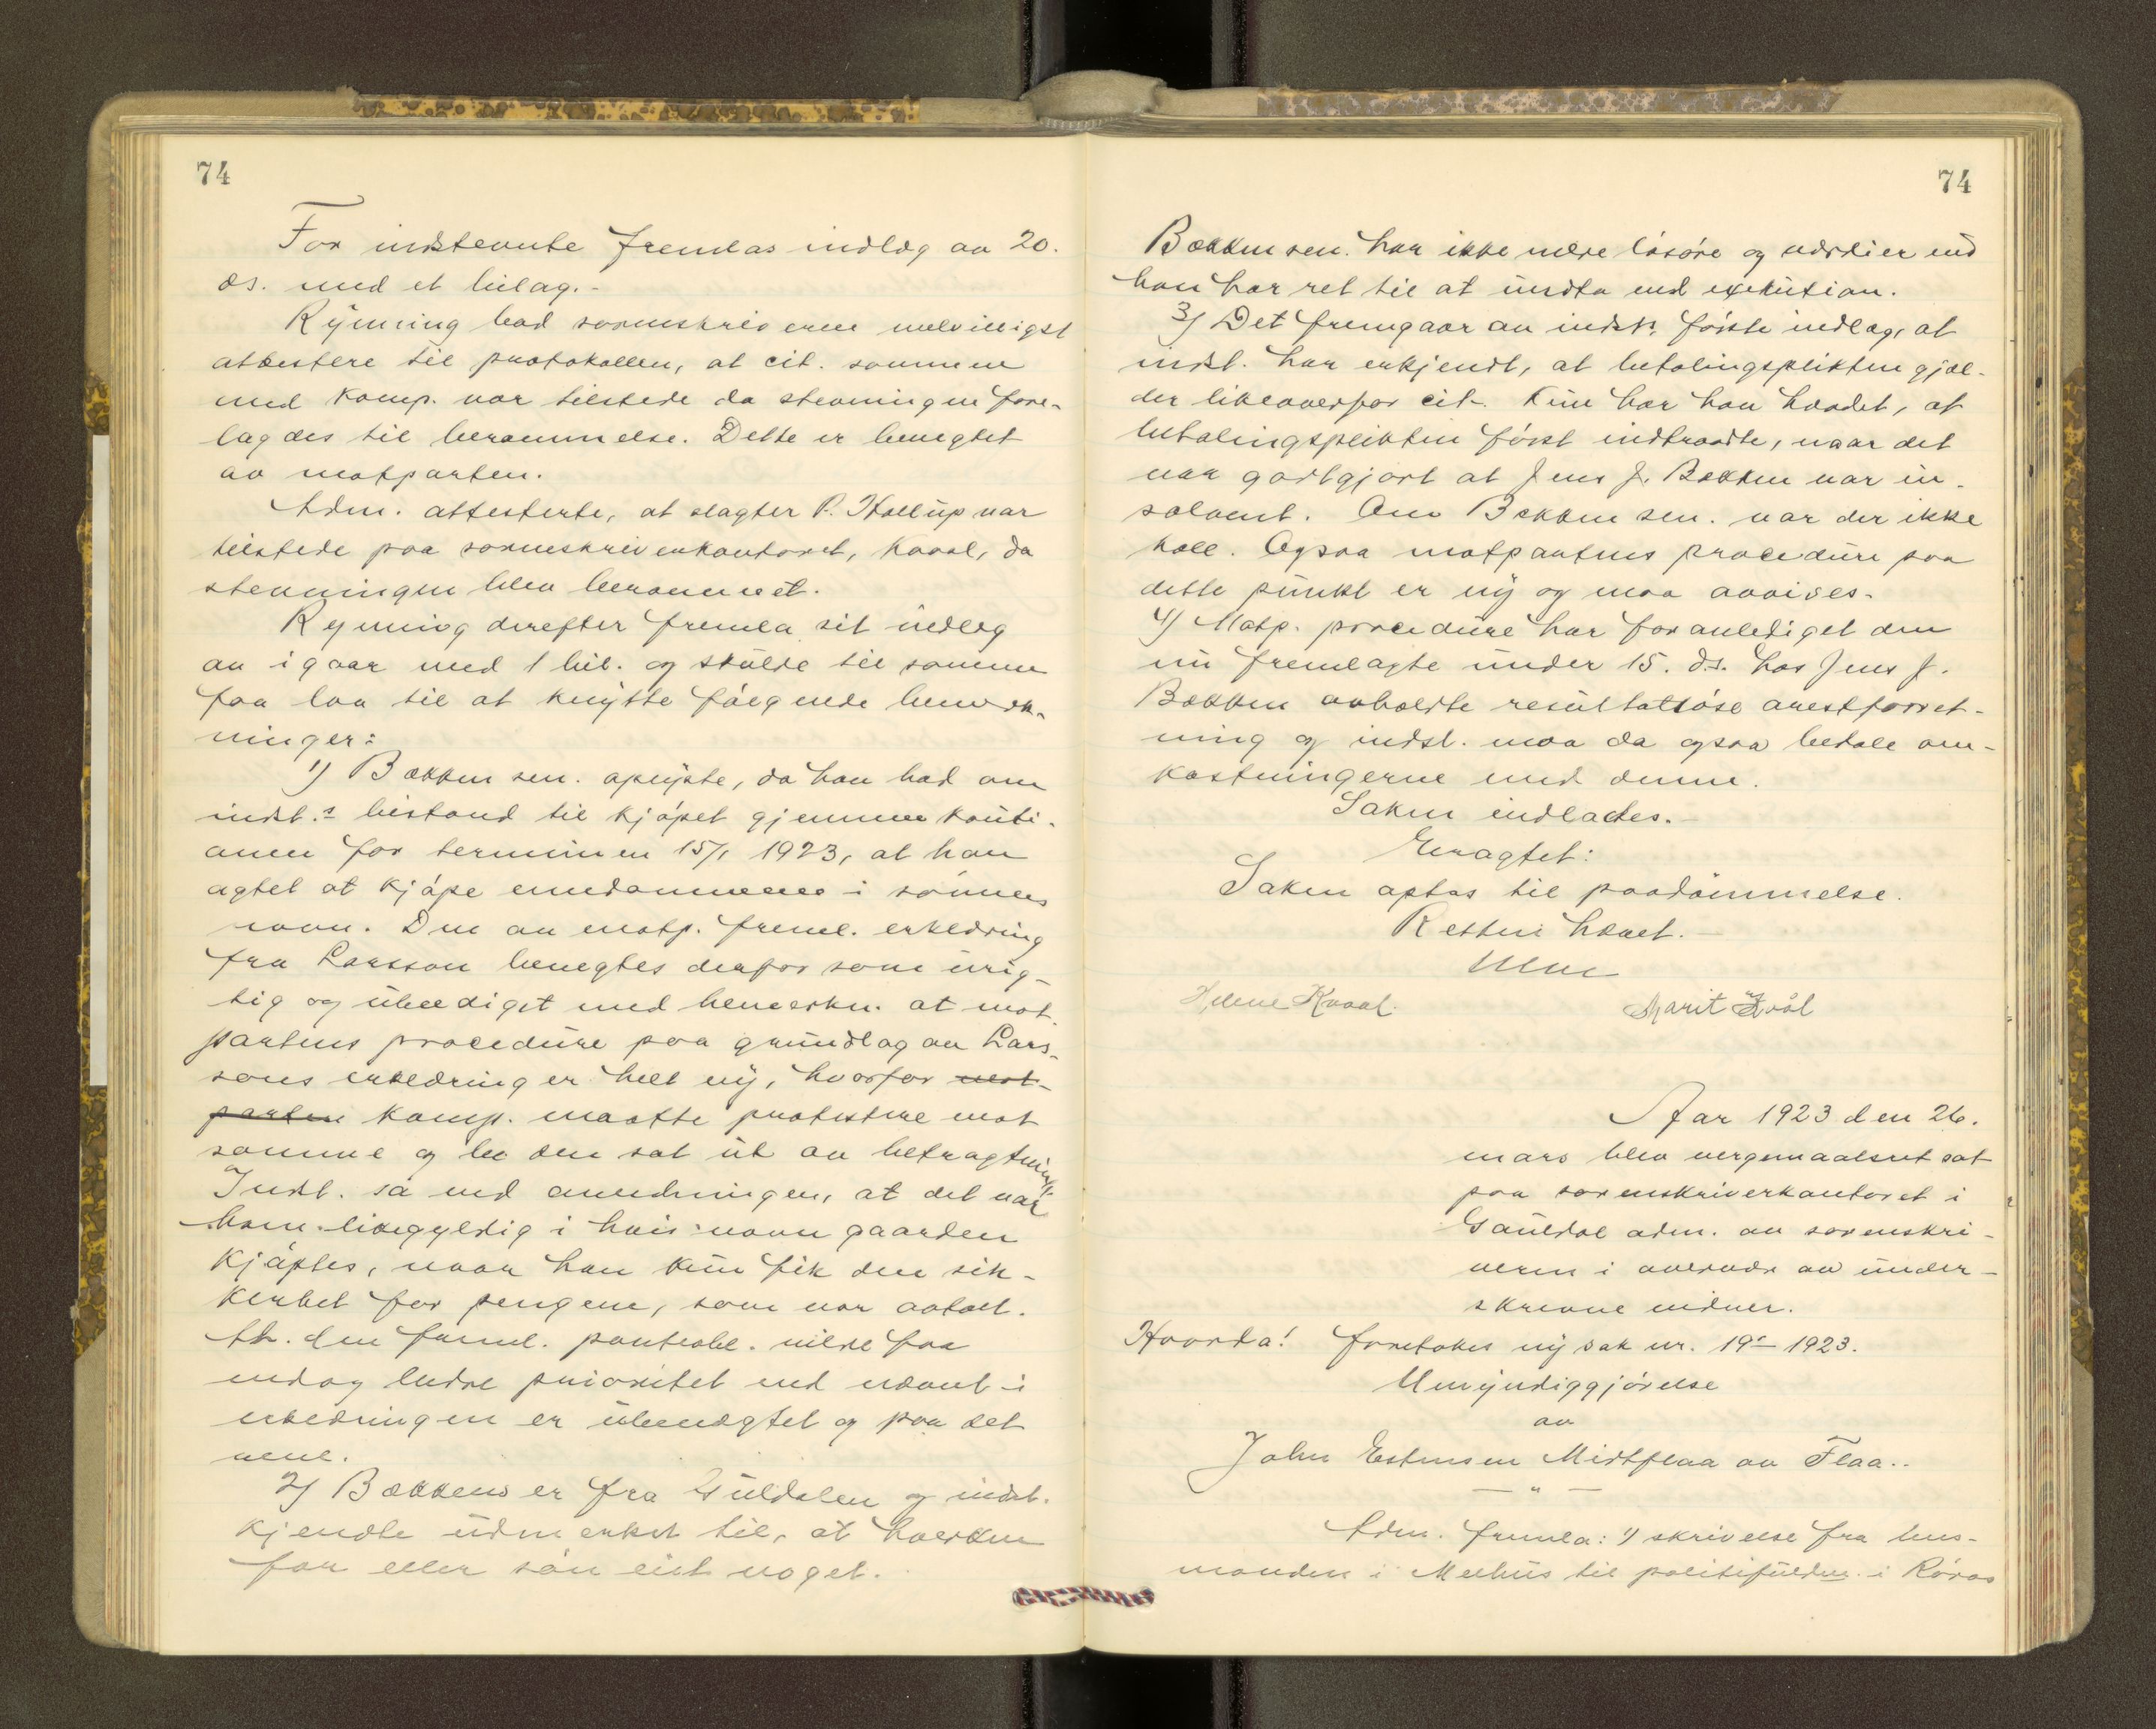 74
For indstevnte fremlas indlæg av 20.
ds. med et bilag.-
Rynning bad sorenskriveren velvilligst
attestere til protokollen, at cit. sammen
med komp. var tilstede da stevningen fore-
lagdes til berammelse. Dette er benegtet
av motparten.
Adm. attesterte, at slagter P. Hollup var
tilstede paa sorenskriverkontoret, Kvaal, da
stevningen blev berammet.
Rynning derefter fremla sit indlæg
av igaar med 1 bil. og skulde til samme
faa lov til at knytte følgende bemerk-
ninger:
1) Bækken sen. oplyste, da han bad om
indst.s bistand til kjøpet gjennem kauti-
onen for terminen 15/1 1923, at han
agtet at kjøpe eiendommen i sønnens
navn. Den av motp. freml. erklæring
fra Larsson benegtes derfor som urig-
tig og ubeediget med bemerkn. at mot-
partens procedure paa grundlag av Lars-
sons erklæring er helt ny, hvorfor mot-
parten komp. maatte protestere mot
samme og be den sat ut av betragtning.
Indst. sa ved anledningen, at det var
ham likegyldig i hvis navn gaarden
kjøptes, naar han kun fik den sik-
kerhet for pengene, som var avtalt.
At den freml. panteobl. vilde faa
endog bedre prioritet end nævnt i
erklæringen er ubenægtet og paa det
rene.
2) Bækkens er fra Guldalen og indst.
kjendte udmerket til, at hverken
far eller søn eiet noget.
74
Bækken sen. har ikke mere løsøre og værdier end
han har ret til at undta ved exekution.
3) Det fremgaar av indst.s første indlæg, at
indst. har erkjendt, at betalingsplikten gjæl-
der likeoverfor cit. Kun har han hævdet, at
betalingsplikten først indtraadte, naar det
var godtgjort at Jens J. Bækken var in-
solvent. Om Bækken sen. var der ikke
tale. Ogsaa motpartens procedure paa
dette punkt er ny og maa avvises.
4) Motp. procedure har foranlediget den
nu fremlagte under 15. ds. hos Jens J.
Bækken avholdte resultatløse arestforret-
ning og indst. maa da ogsaa betale om-
kostningerne med denne.
Saken indlades.-
Eragtet:
Saken optas til paadømmelse.
Retten hævet.-
Helene Kvaal. Marit Kvål
Aar 1923 den 26.
mars blev vergemaalsret sat
paa sorenskriverkontoret i
Gauldal adm. av sorenskri-
veren i overvær av under-
skrevne vidner.
Hvorda! foretokes ny sak nr. 19- 1923.
Umyndiggjørelse
av
John Estensen Midtflaa av Flaa..
— " —
Adm. fremla: 1) skrivelse fra lens-
manden i Melhus til politifuldm. i Røros